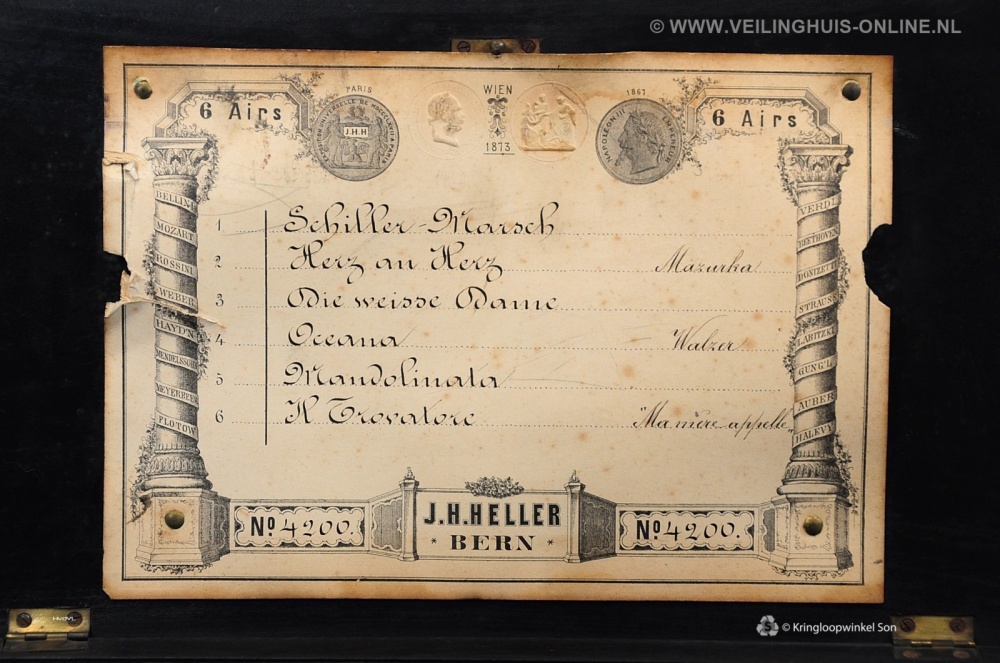 © WWW.VEILINGHUIS-ONLINE.NL
6 Airs
PARIS
J.H.H
WIEN
1873
1867
NAPOLEON III EMPEREUR
6 Airs
BELLINI
MOZART
ROSSINI
WEBER
HAYD'N
MENDELSSOHN
MEYERBEER
FLOTOW
1 Schiller-Marsch
2 Herz an Herz Mazurka
3 Die weisse Dame
4 Oceana Walzer
5 Mandolinata
6 Il Trovatore "Ma mère appelle"
VERDI
BEETHOVEN
DONIZETTI
STRAUSS
LABITZKI
GUNG'L
AUBER
HALEVY
No 4200.
J.H.HELLER
* BERN *
No 4200.
© Kringloopwinkel Son